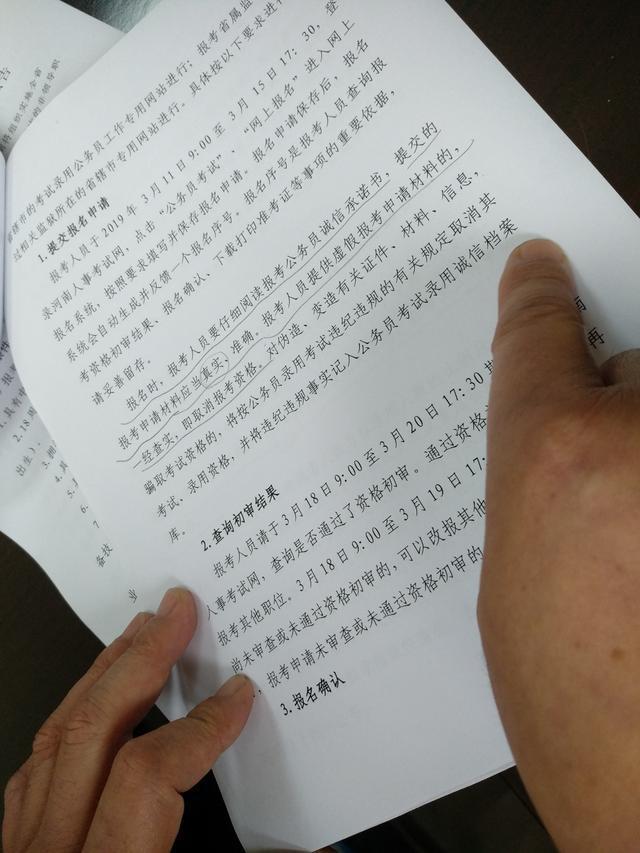 省辖市的考试录用公务员工作专用网站进行；报考省属监
过相关监狱所在的省辖市专用网站进行。具体按以下要求进行
1. 提交报名申请
报考人员于 2019 年 3 月 11 日 9:00 至 3 月 15 日 17:30，登
录河南人事考试网，点击“公务员考试”、“网上报名”进入网上
报名系统，按照要求填写并保存报名申请。报名申请保存后，报名
系统会自动生成并反馈一个报名序号。报名序号是报考人员查询报
考资格初审结果、报名确认、下载打印准考证等事项的重要依据，
请妥善留存。
报名时，报考人员要仔细阅读报考公务员诚信承诺书，提交的
报考申请材料应当真实、准确。报考人员提供虚假报考申请材料的，
一经查实，即取消报考资格。对伪造、变造有关证件、材料、信息，
骗取考试资格的，将按公务员录用考试违纪违规的有关规定取消其
考试、录用资格，并将违纪违规事实记入公务员考试录用诚信档案
库。
2. 查询初审结果
报考人员请于 3 月 18 日 9:00 至 3 月 20 日 17:30 期
人事考试网，查询是否通过了资格初审。通过资格
报考其他职位。3 月 18 日 9:00 至 3 月 19 日 17:
尚未审查或未通过资格初审的，可以改报其他
，报考申请未审查或未通过资格初审的
3. 报名确认
再